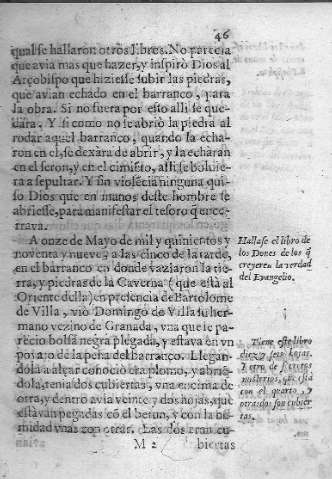 46
qual se hallaron otros libres. No parecia
que avia mas que hazer, y inspirò Dios al
Arçobispo que hiziesse subir las piedras,
que avian echado en el barranco, para
la obra. Si no fuera por esto alli se que-
dàra. Y si como no se abriò la piedra al
rodar aquel barranco, quando la echa-
ron en el, se dexàra de abrir, y la echàran
en el seron, y en el cimiẽto, alli se bolvie-
ra a sepultar. Y sin violẽcia ninguna qui-
so Dios que en manos deste hombre se
abriesse, para manifestar el tesoro q̃ ence-
rrava.
A onze de Mayo de mil y quinientos y
noventa y nueve, a las cinco de la tarde,
en el barranco en donde vaziaron la tie-
rra, y piedras de la Caverna (que està al
Oriente della) en presencia de Bartolome
de Villa, viò Domingo de Villa su her-
mano vezino de Granada, vna que le pa-
recio bolsa negra plegada, y estava en vn
poyato de la peña del barranco. Llegan-
dola a alçar conociò era plomo, y abriẽ-
dola, tenia dos cubiertas, vna encima de
otra, y dentro avia veinte y dos hojas, que
estàvan pegadas cõ el betun, y con la hu-
midad vnas con otras. Las dos eran cu-
M 2 biertas
Hallase el libro de
los Dones de los q̃
creyeren la verdad
del Evangelio.
Tiene este libro
diez y seis hojas.
Y otro de secretos
misterios, que està
con el quarto, Y
otras dos son cubier
tas.